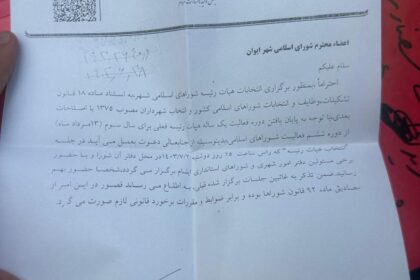 اعضاء محترم شورای اسلامی شهر ایوان
سلام علیکم
احتراماً بمنظور برگزاری انتخابات هیات رئیسه شوراهای اسلامی شهر،به استناد ماده ۱۸ قانون
تشکیلات،وظایف و انتخابات شوراهای اسلامی کشور و انتخاب شهرداران مصوب ۱۳۷۵ با اصلاحات
بعدی،با توجه به پایان یافتن دوره فعالیت یک ساله هیات رئیسه فعلی برای سال سوم (۱۳مرداد ماه)
از دوره ششم فعالیت شوراهای اسلامی،بدینوسیله از جنابعالی دعوت بعمل می آید در جلسه
"انتخاب هیات رئیسه" که راس ساعت ۱۵ روز ۱۴۰۳/۷/۲ در محل دفتر آن شورا و با حضور
برخی مسئولین دفتر امور شهری و شوراهای استانداری ایلام برگزار می گردد،شخصاً حضور بهم
رسانید.ضمن تذکر به غائبین جلسات برگزار شده قبلی، به اطلاع می رساند قصور در این امر از
مصادیق ماده ۹۲ قانون شوراها بوده و برابر ضوابط و مقررات برخورد قانونی لازم صورت می گیرد.